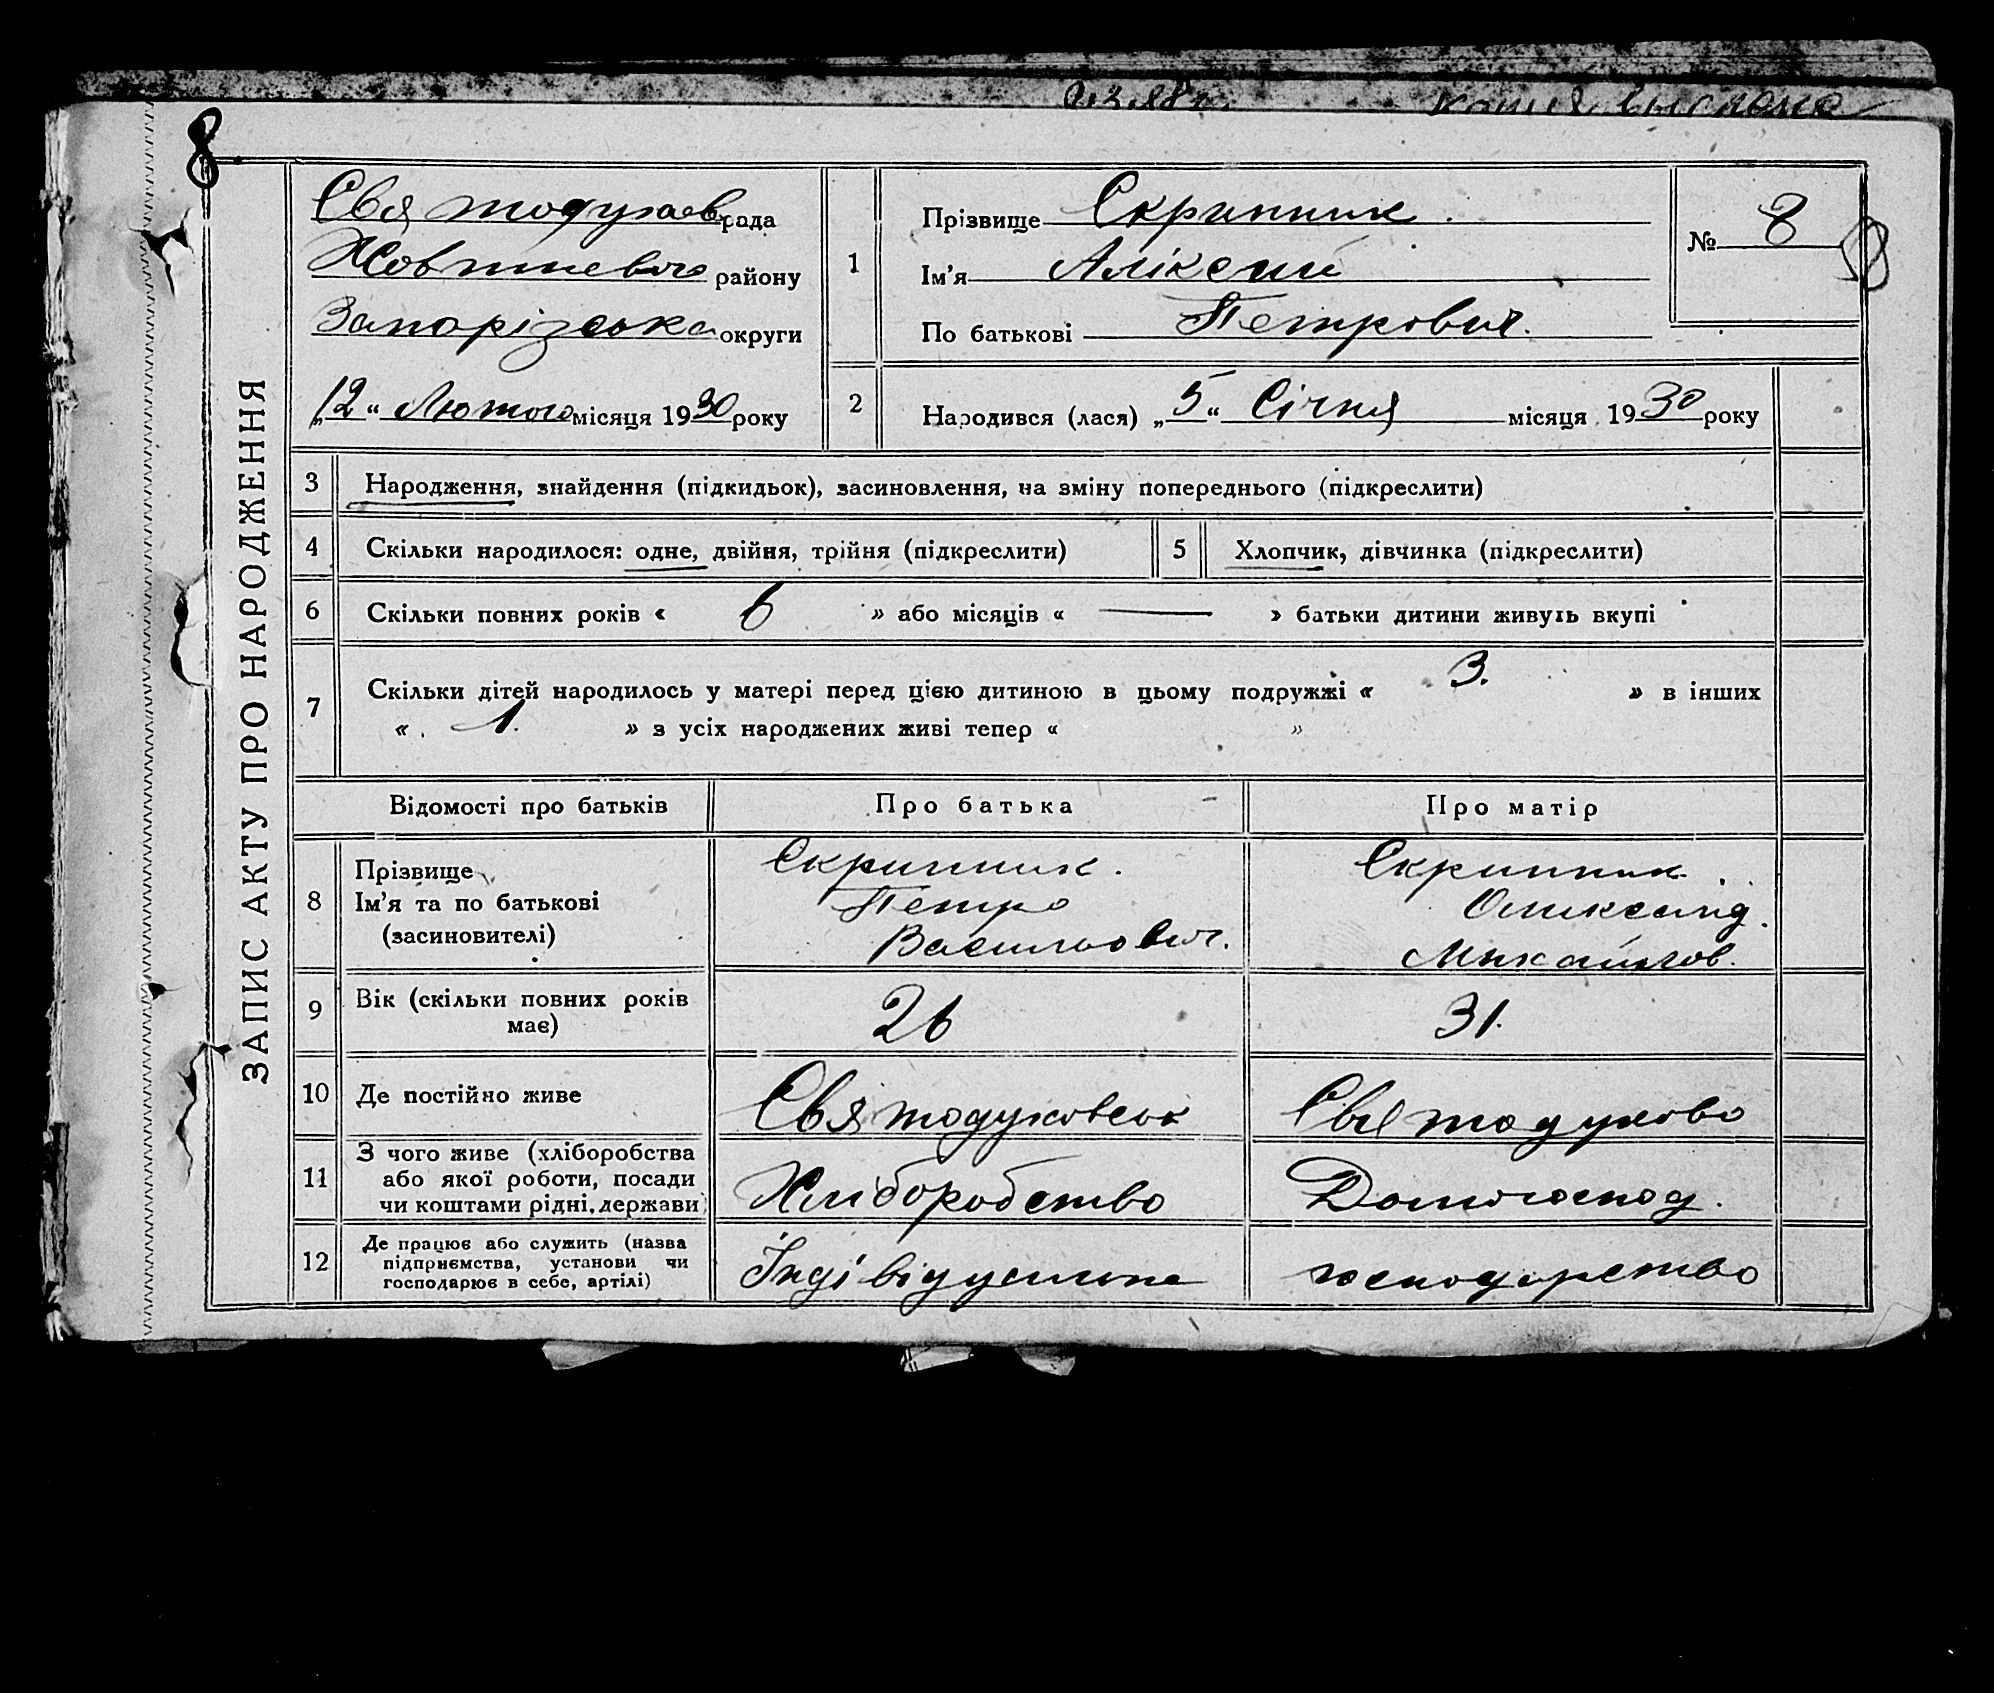 копия выслана
8
ЗАПИС АКТУ ПРО НАРОДЖЕННЯ
Святодухов рада
Жовтневого району
Запорізська округи
„12“ Лютого місяця 1930 року
1
Прізвище Скрипник.
Ім'я Аліксий
По батькові Петрович.
№ 8
8
2
Народився (лася) „5“ Січня місяця 1930 року
3 Народження, знайдення (підкидьок), засиновлення, на зміну попереднього (підкреслити)
4 Скільки народилося: одне, двійня, трійня (підкреслити) 5 Хлопчик, дівчинка (підкреслити)
6 Скільки повних років « 6 » або місяців « — » батьки дитини живуть вкупі
7 Скільки дітей народилось у матері перед цією дитиною в цьому подружжі « 3. » в інших
« 1. » з усіх народжених живі тепер « »
Відомості про батьків Про батька Про матір
8
Прізвище
Ім'я та по батькові
(засиновителі)
Скрипник.
Петро
Васильович.
Скрипник.
Оликсанд.
Михайлов.
9 Вік (скільки повних років
має)
26
31.
10 Де постійно живе
Святодуховськ
Святодухово
11 З чого живе (хліборобства
або якої роботи, посади
чи коштами рідні, держави)
Хліборобство
Домогоспод.
12 Де працює або служить (назва
підприємства, установи чи
господарює в себе, артілі)
Індівідуальне
господарство